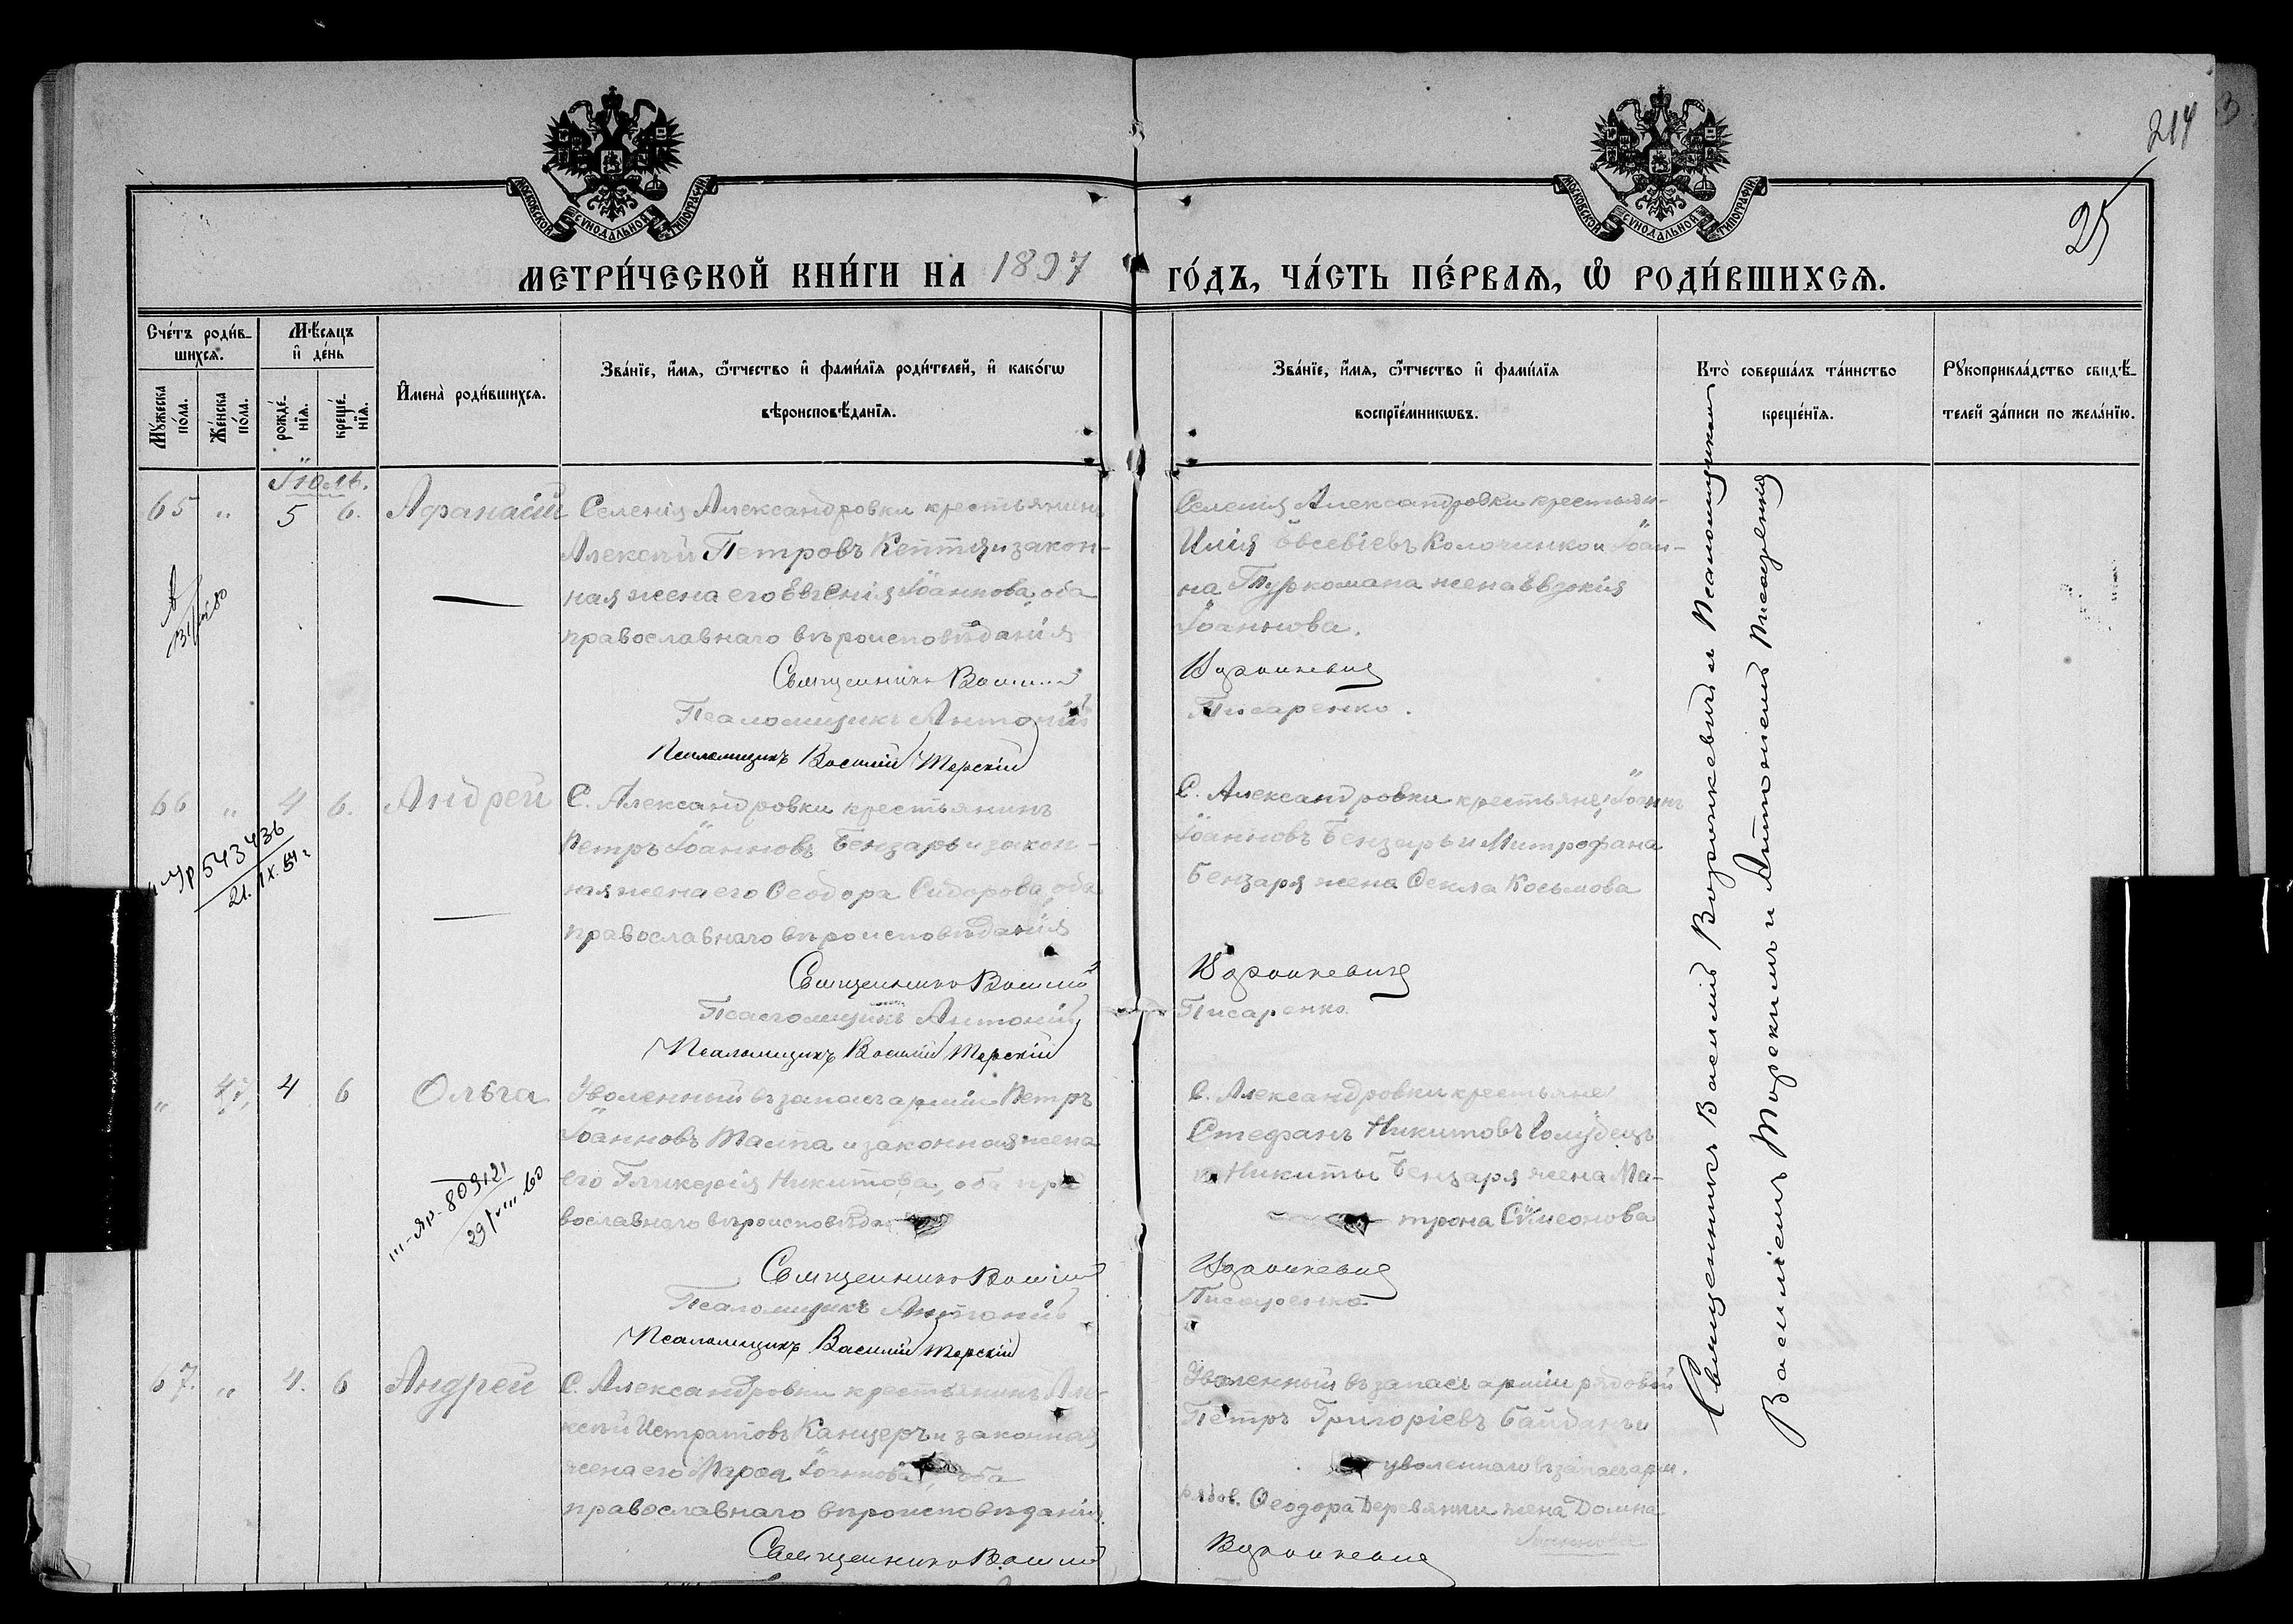 214
25
МОСКОВСКОЙ СУНОДАЛЬНОЙ ТИПОГРАФІИ
МОСКОВСКОЙ СУНОДАЛЬНОЙ ТИПОГРАФІИ
МЕТРИ́ЧЕСКОЙ КНИ́ГИ НА 1897 ГО́ДЪ, ЧА́СТЬ ПЕ́РВАѦ, Ѡ РОДИ́ВШИХСѦ.
Счéтъ роди́вшихсѧ.
Мꙋ́жеска по́ла.
Же́нска по́ла.
Мѣ́сѧцъ и де́нь
рожде́нїѧ.
креще́нїѧ.
Имена̀ роди́вшихсѧ.
Зва́нїе, и́мѧ, ѻ́тчество и фами́лїѧ роди́телей, и како́гѡ
вѣроисповѣ́данїѧ.
Зва́нїе, и́мѧ, ѻ́тчество и фами́лїѧ
воспрїе́мникѡвъ.
Кто̀ соверша́лъ та́инство
креще́нїѧ.
Рꙋкоприкла́дство свидѣ́телей за́писи по жела́нїю.
Іюль.
65 " 5 6. Афанасій
Селенія Александровки крестьянинъ
Алексѣй Петровъ Кептя и закон-
ная жена его Евгенія Іоаннова, оба
православнаго вѣроисповѣданія
Священникъ Василій
Псаломщикъ Антоній
Псаломщикъ Василій Терскій
Селенія Александровки крестьян-
Илія Евсевіевъ Колочинко и Іоан-
на Туркомана жена Евдокія
Іоаннова.
Воронкевич
Писаренко.
66 " 4 6. Андрей
543436
21.IX.51г
С. Александровки крестьянинъ
Петръ Іоанновъ Бензарь и закон-
ная жена его Ѳеодора Сидорова, оба
православнаго вѣроисповѣданія
Священникъ Василій
Псаломщикъ Антоній
Псаломщикъ Василій Терскій
С. Александровки крестьяне, Іоаннъ
Іоанновъ Бензарь и Митрофана
Бензаря жена Ѳекла Косьмова
Воронкевичъ
Писаренко.
" 47, 4 6 Ольга
III-ЯР-809121
29/VIII 60
Уволенный въ запасъ арміи Петръ
Іоанновъ Талпа и законная жена
его Гликерія Никитова, оба пра
вославнаго вѣроисповѣда
Священникъ Василій
Псаломщикъ Антоній
Псаломщикъ Василій Терскій
С. Александровки крестьяне
Стефанъ Никитовъ Голубецъ
и Никиты Бензаря жена Ма-
трона Сѵмеонова
Воронкевич
Писаренко
67. " 4. 6 Андрей
С. Александровки крестьянинъ Але-
ксѣй Истратовъ Канцеръ и законная
жена его Марѳа Іоаннова, оба
православнаго вѣроисповѣданія.
Священникъ Василій
Уволенный въ запасъ арміи рядовой
Петръ Григоріевъ Байданъ и
уволеннаго въ запасъ арм.
рядов. Ѳеодора Деревянки жена Домна
Іоаннова
Воронкевич
Священникъ Василій Воронкевичъ и Псаломщиками
Василіемъ Терскимъ и Антоніемъ Писаренко